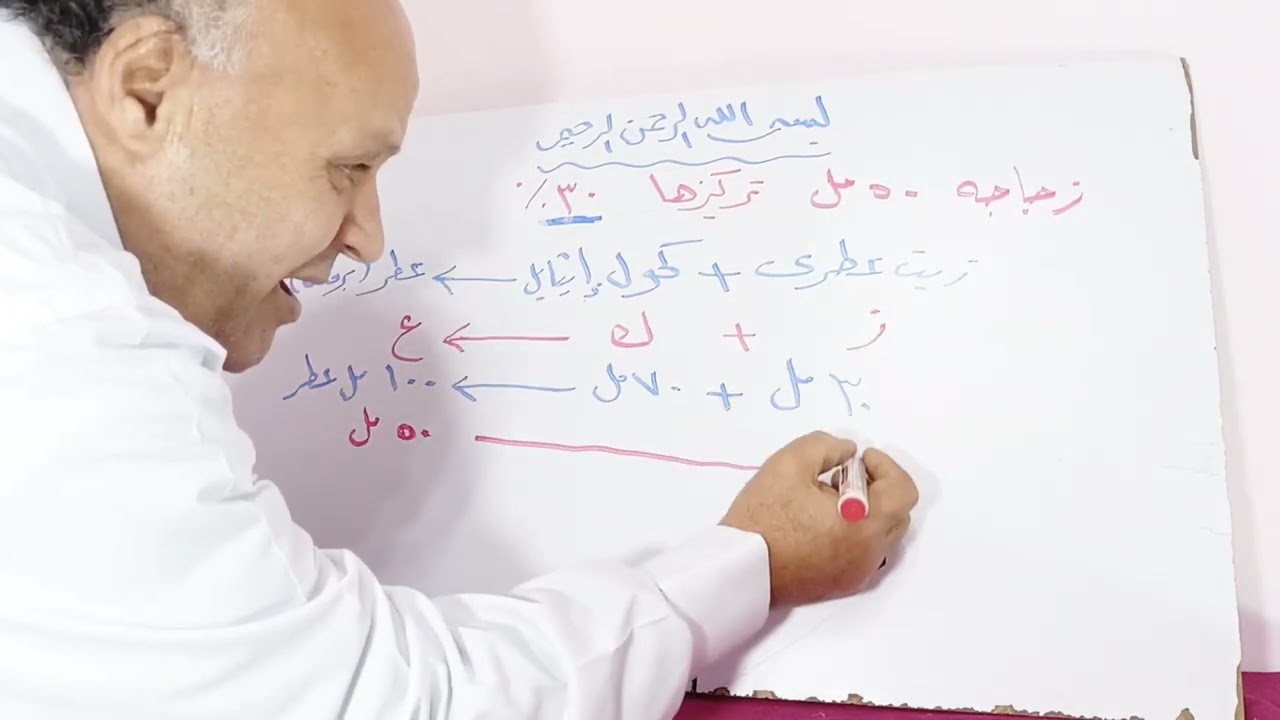 بسم الله الرحمن الرحيم
زجاجه ٥٠ مل تركيزها ٣٠٪
زيت عطرى + كحول إيثايل ← عطر
ز + ك ← ع
٣٠ مل + ٧٠ مل ← ١٠٠ مل عطر
٥٠ مل